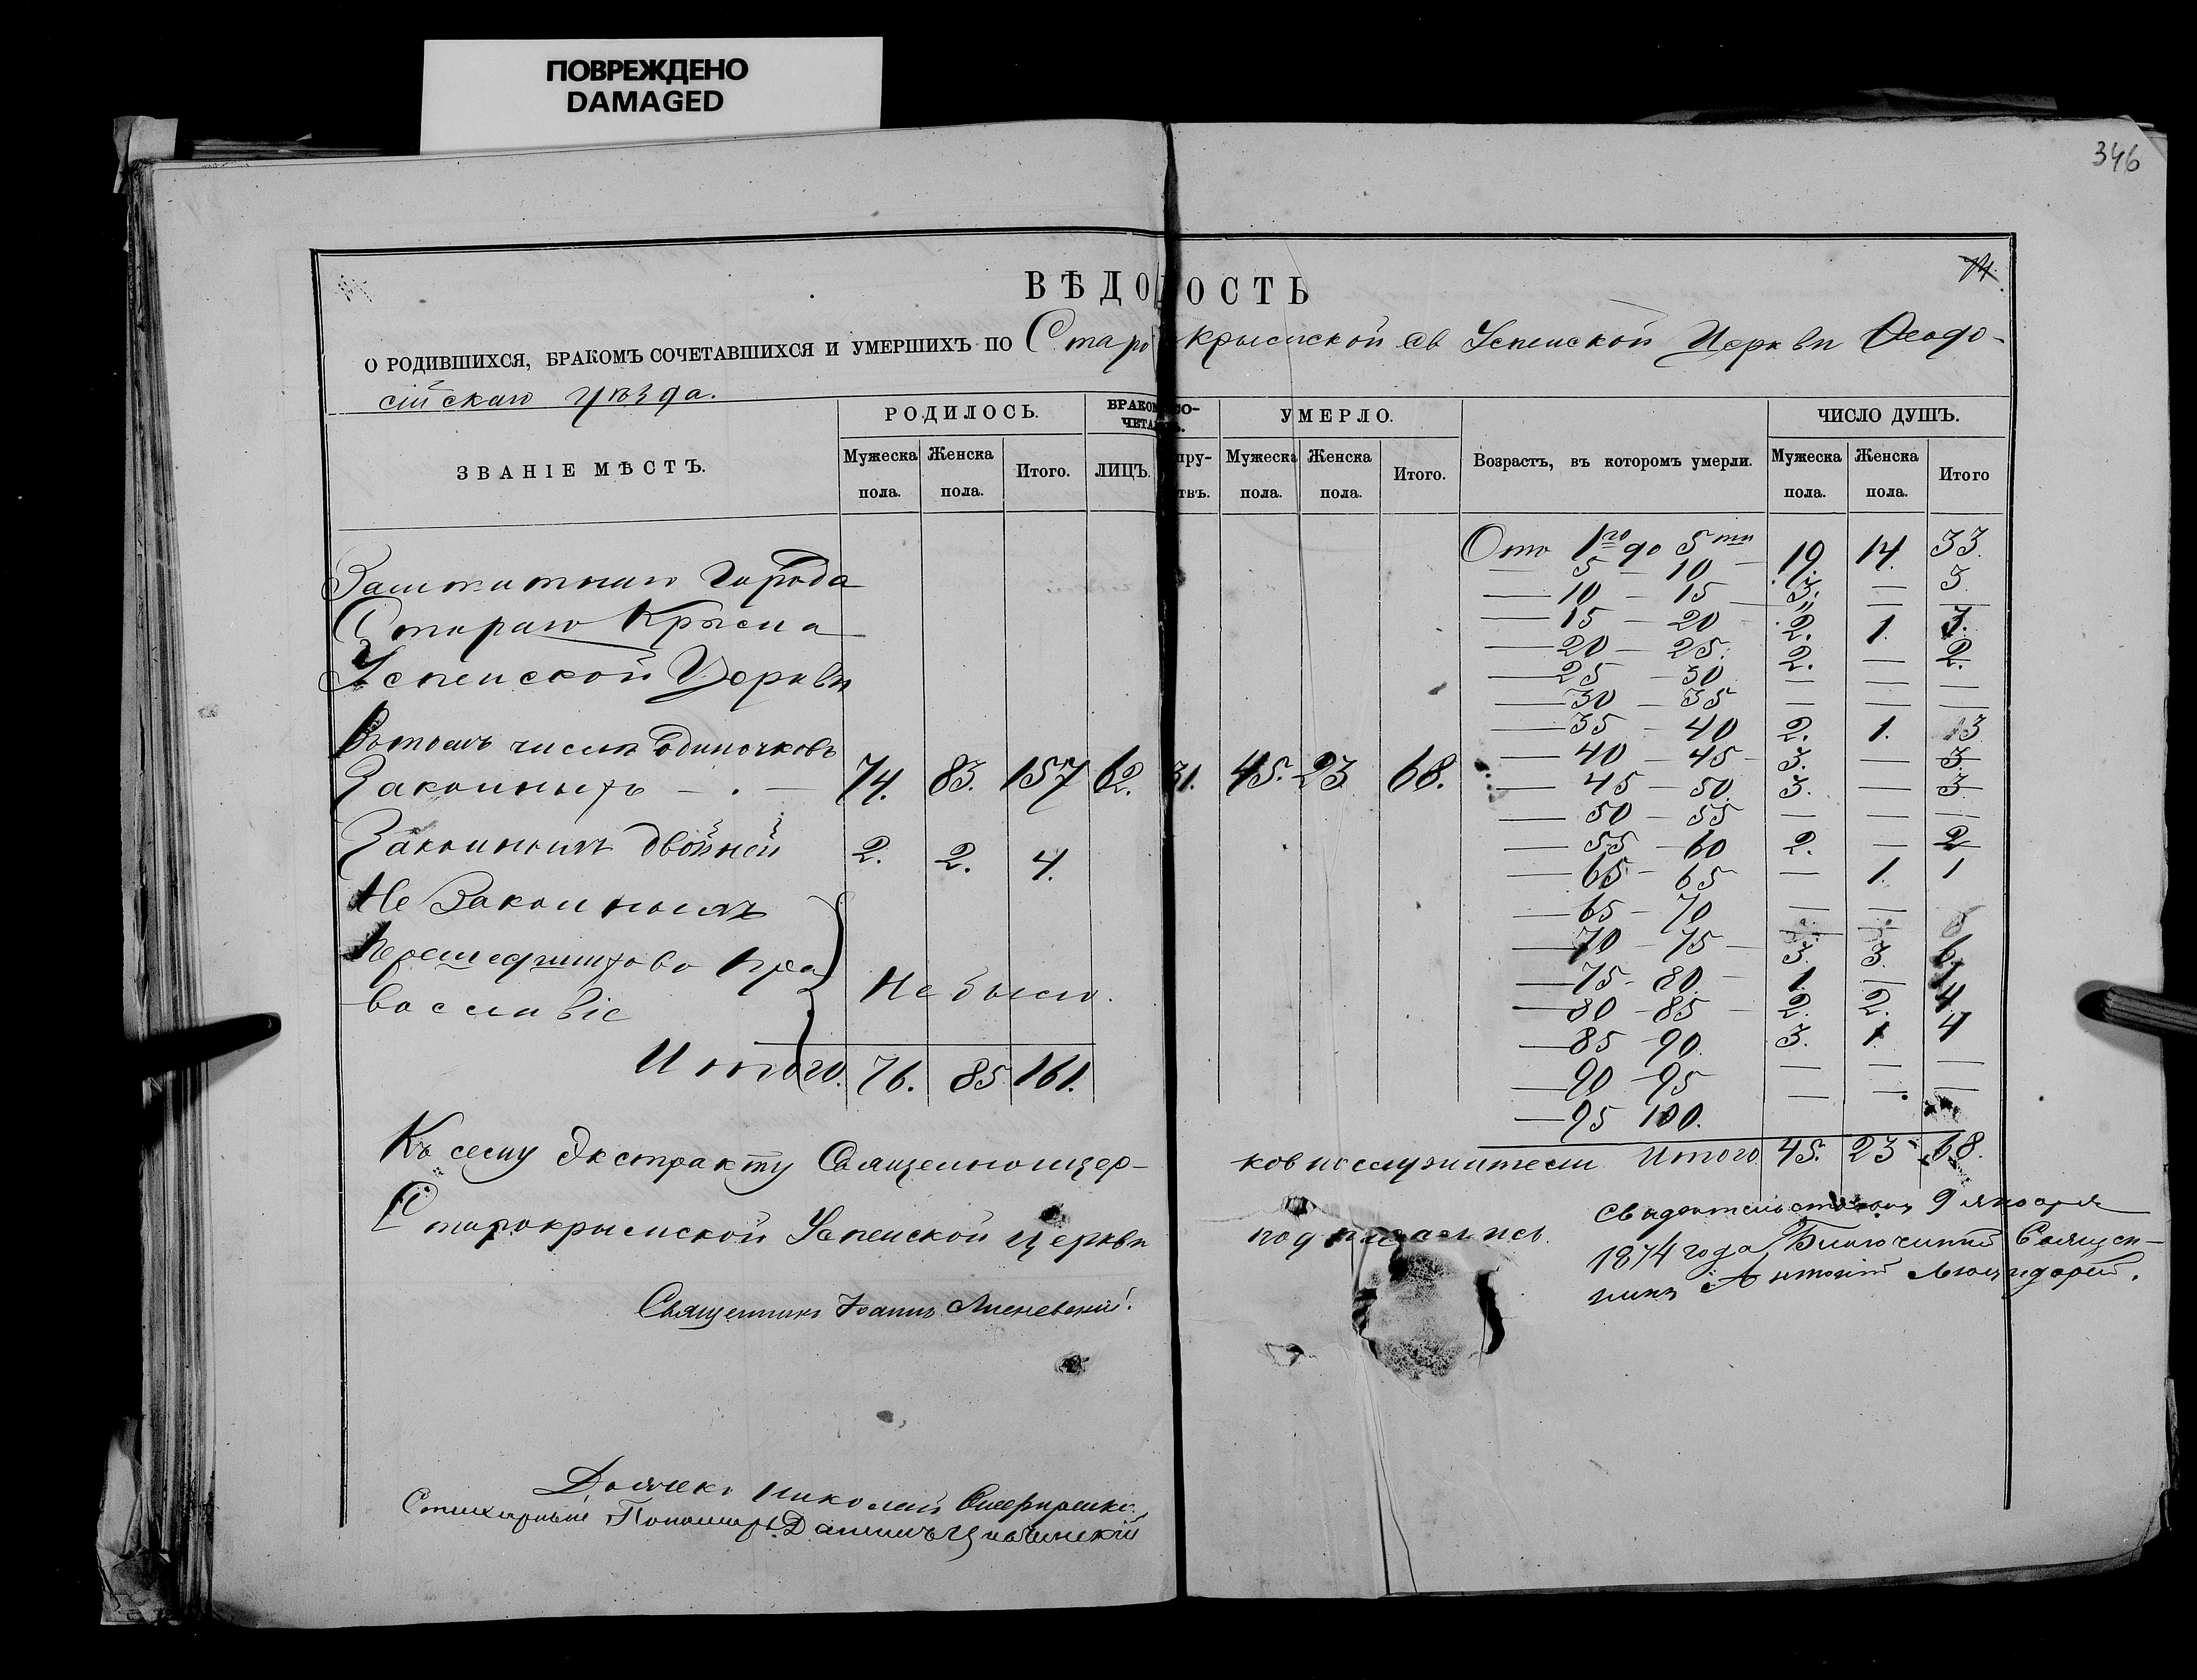 ПОВРЕЖДЕНО
DAMAGED
346
ВѢДОМОСТЬ
О РОДИВШИХСЯ, БРАКОМЪ СОЧЕТАВШИХСЯ И УМЕРШИХЪ ПО Старокрымской Св Успенской Церкви Ѳеодо-
сійскаго уѣзда.
ЗВАНІЕ МѢСТЪ.
РОДИЛОСЬ.
Мужеска пола. Женска пола. Итого.
ЛИЦЪ.
УМЕРЛО.
Мужеска пола. Женска пола. Итого.
Возрастъ, въ которомъ умерли.
ЧИСЛО ДУШЪ.
Мужеска пола. Женска пола. Итого
Заштатнаго Города
Стараго Крыма
Успенской Церкви
Въ томъ числѣ Одиночковъ
Законныхъ — . — 74. 83. 157 62. 31. 45. 23 68.
Законныхъ двойней 2. 2. 4.
Не Законныхъ
Перешедшихъ во Пра
вославіе
Не было.
Итого. 76. 85 161.
Отъ 1го до 5ти 19. 14. 33.
5 — 10 — 3. — 3.
10 — 15 — " — —
15 — 20 — 2. 1. 3.
20 — 25. 2. — 2.
25 — 30 — — —
30 — 35 — — —
35 — 40 2. 1. 3
40 — 45 — 3. — 3
45 — 50. 3. — 3
50 — 55 — — —
55 — 60 2. — 2
65 — 65 — 1. 1
65 — 70 — —
70 — 75 — 3. 3. 6.
75 — 80. — 1. — 1
80 — 85 — 2. 2. 4
85 90. 3. 1. 4
90 — 95 — — —
95 100. — — —
Итого 45. 23 68.
Къ сему Экстракту Священноцер-
ковнослужители
Старокрымской Успенской Церкви
подписались.
Священникъ Іоаннъ
Николай
Стихарный Пономарь Даниилъ
Свидѣтельствовалъ 9 января
1874 года Благочинный Священ-
никъ Антоній